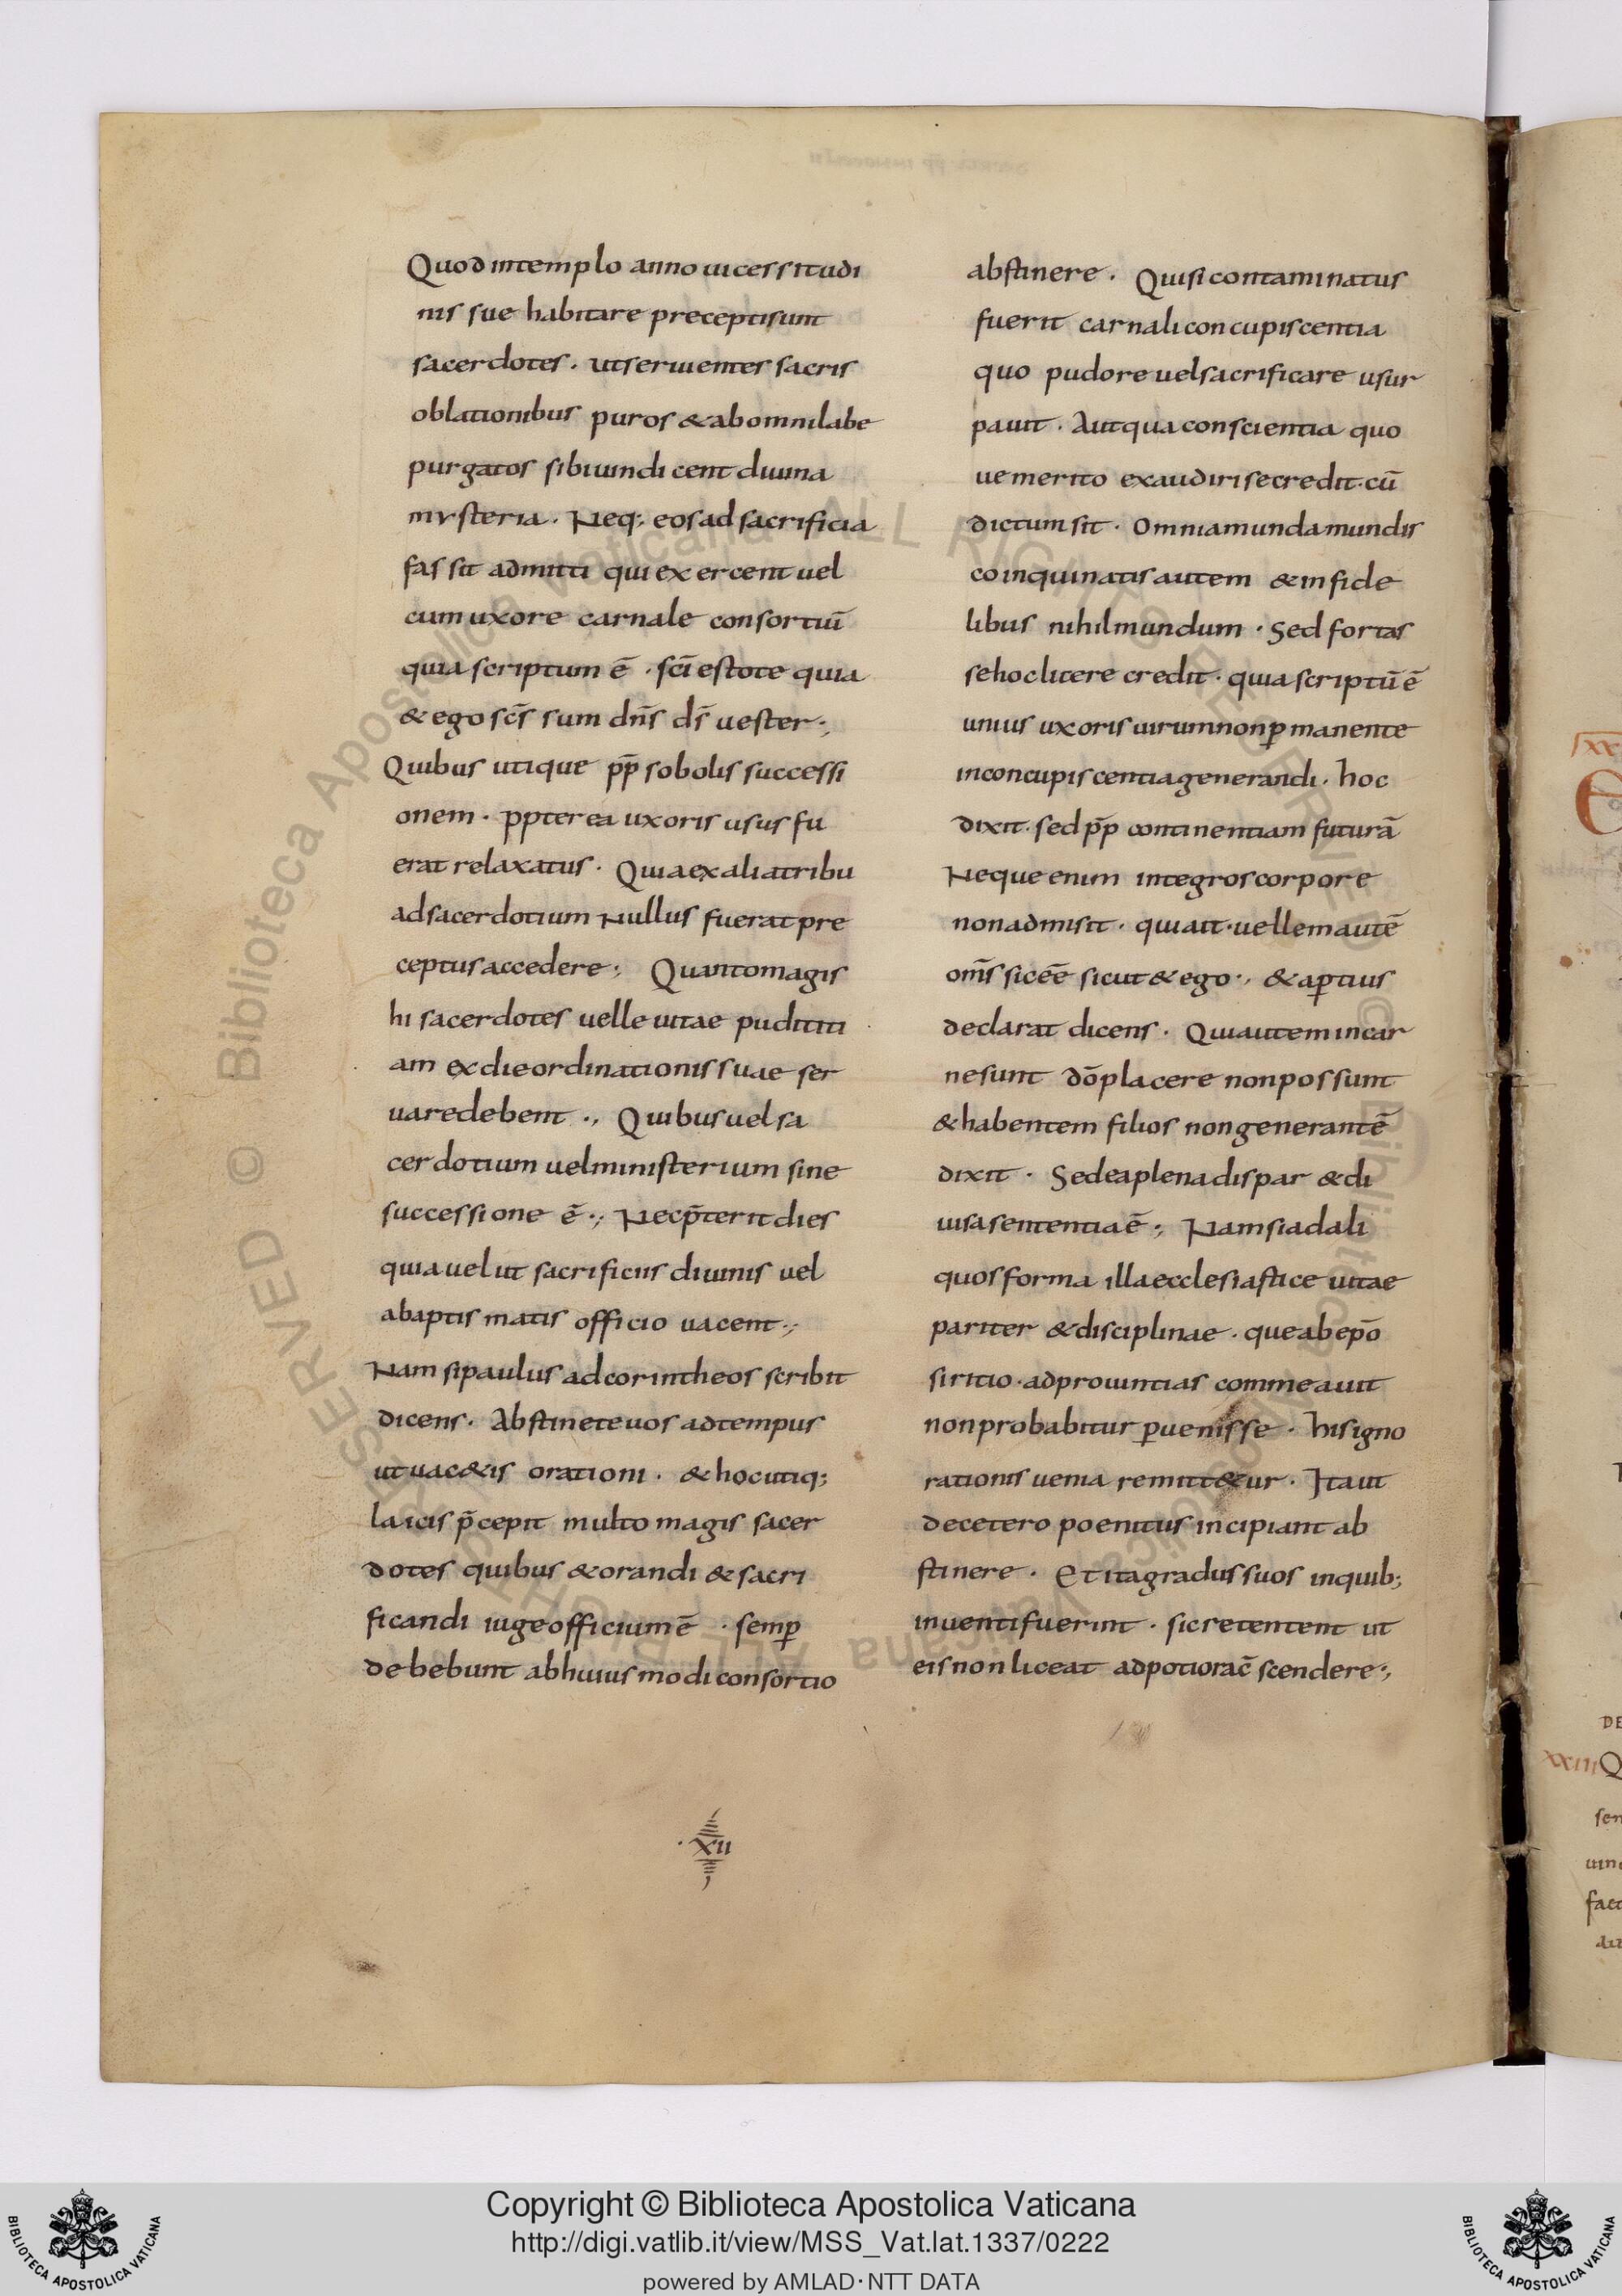 Quod in templo anno uicessitudi
nis sue habitare precepti sunt
sacerdotes. ut seruientes sacris
oblationibus puros & ab omni labe
purgatos sibi uindicent diuina
mysteria. Neq; eos ad sacrificia
fas sit admitti qui exercent uel
cum uxore carnale consortiū
quia scriptum ē. sc̄i estote quia
& ego sc̄s sum dn̄s ds̄ uester·,
Quibus utique pp̄ sobolis successi
onem. ꝓpterea uxoris usus fu
erat relaxatus. Quia ex alia tribu
ad sacerdotium Nullus fuerat pre
ceptus accedere·, Quanto magis
hi sacerdotes uelleuitae pudititi
am ex die ordinationis suae ser
uare debent·, Quibus uel sa
cerdotium uel ministerium sine
successione ē·, Nec p̄terit dies
quia uel ut sacrificiis diuinis uel
a baptismatis officio uacent·,
Nam si paulus ad corintheos scribit
dicens. Abstinete uos ad tempus
ut uac&is orationi. & hoc utiq;
laicis p̄cepit multo magis sacer
dotes quibus & orandi & sacri
ficandi iuge officium ē. semꝑ
debebunt ab huiusmodi consortio
abstinere. Qui si contaminatus
fuerit carnali concupiscentia
quo pudore uel sacrificare usur
pauit. Aut qua conscientia quo
ue merito exaudiri se credit. cū
dictum sit. Omnia munda mundis
coinquinatis autem & infide
libus nihil mundum. Sed fortas
se hoc licere credit. quia scriptū ē
unius uxoris uirum non ꝑmanente
in concupiscentia generandi. hoc
dixit. sed pp̄ continentiam futurā
Neque enim integros corpore
non admisit. qui ait. uellem autē
om̄s sic eē sicut & ego·, & aꝑtius
declarat dicens. Qui autem in car
ne sunt dō placere non possunt
& habentem filios non generantē
dixit. Sed ea plena dispar & di
uisa sententia ē·, Nam si ad ali
quos forma illa ecclesiastice uitae
pariter & disciplinae. que ab epō
siritio. ad prouintias commeauit
non probabitur ꝑuenisse. his igno
rationis uenia remitt&ur. Ita ut
de cetero poenitus incipiant ab
stinere. Et ita gradus suos in quib;
inuenti fuerint. sic retentent ut
eis non liceat ad potiora c̄scendere·,
xii
DE
xxiii Q
Copyright © Biblioteca Apostolica Vaticana
http://digi.vatlib.it/view/MSS_Vat.lat.1337/0222
powered by AMLAD·NTT DATA
BIBLIOTECA APOSTOLICA VATICANA
BIBLIOTECA APOSTOLICA VATICANA